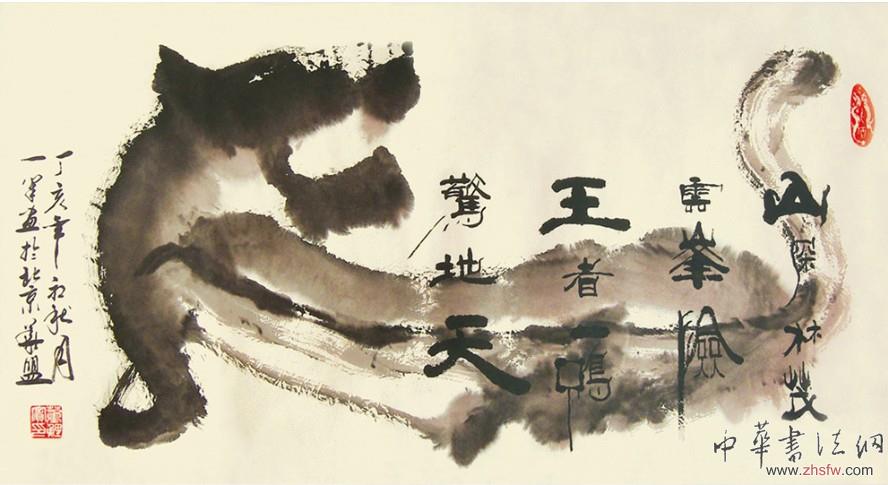 山深林茂
雲峯險
王者一鳴
驚地天
丁亥年初秋月
一筆畫於北京華盟
中華書法網
www.zhsfw.com